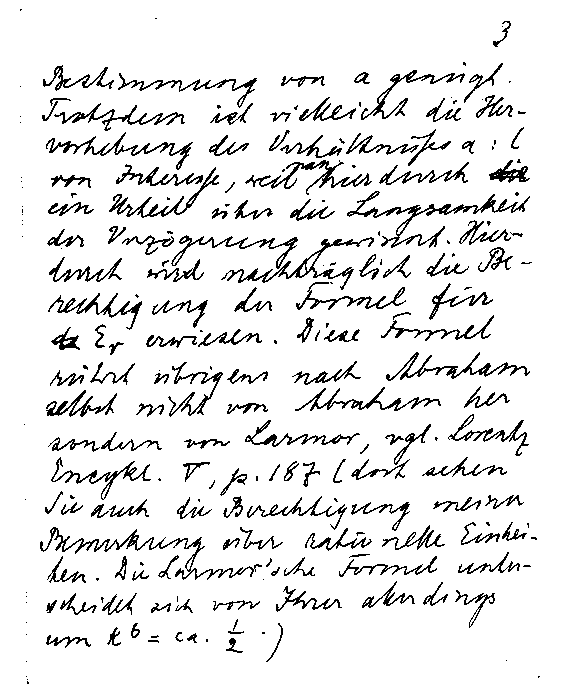 3
Bestimmung von a genügt.
Trotzdem ist vielleicht die Her-
vorhebung des Verhältnisses a : l
von Interesse, weil man hierdurch die
ein Urteil über die Langsamkeit
der Verzögerung gewinnt. Hier-
durch wird nachträglich die Be-
rechtigung der Formel für
de Er erwiesen. Diese Formel
rührt übrigens nach Abraham
selbst nicht von Abraham her
sondern von Larmor, vgl. Lorentz
Encykl. V, p. 187 (dort sehen
Sie auch die Berechtigung meiner
Bemerkung über rationelle Einhei-
ten. Die Larmor'sche Formel unter-
scheidet sich von Ihrer allerdings
um k⁶ = ca. ½ .)